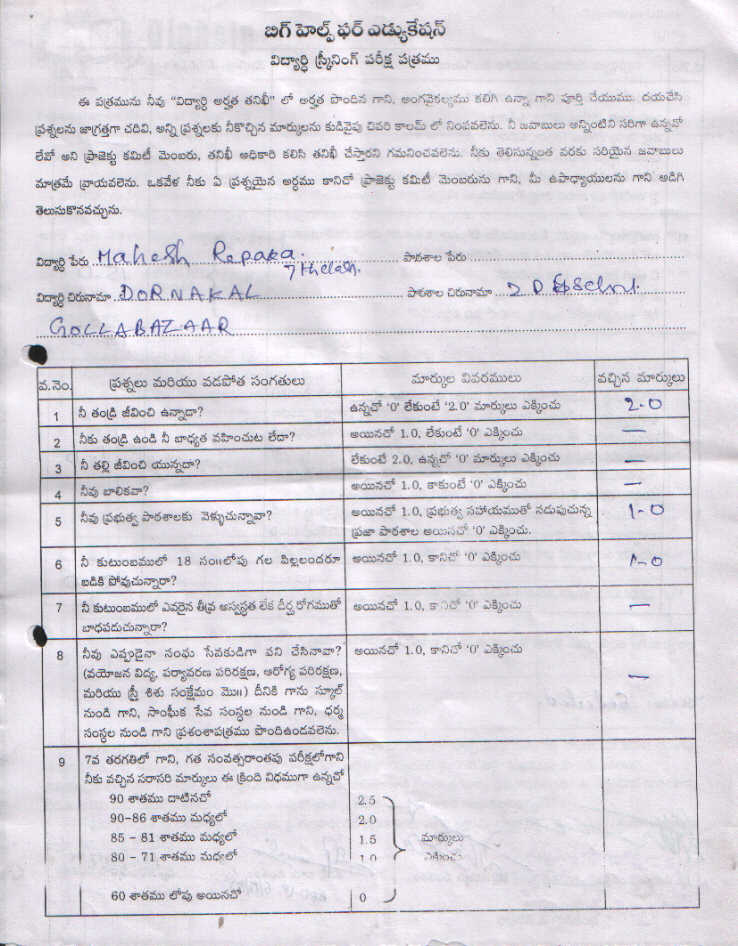 బిగ్ హెల్ప్ ఫర్ ఎడ్యుకేషన్
విద్యార్థి స్క్రీనింగ్ పరీక్ష పత్రము
ఈ పత్రమును నీవు "విద్యార్థి అర్హత తనిఖీ" లో అర్హత పొందిన గాని, అంగవైకల్యము కలిగి ఉన్నా గాని పూర్తి చేయుము. దయచేసి
ప్రశ్నలను జాగ్రత్తగా చదివి, అన్ని ప్రశ్నలకు నీకొచ్చిన మార్కులను కుడివైపు చివరి కాలమ్ లో నింపవలెను. నీ జవాబులు అన్నింటిని సరిగా ఉన్నవో
లేవో అని ప్రాజెక్టు కమిటీ మెంబరు, తనిఖీ అధికారి కలిసి తనిఖీ చేస్తారని గమనించవలెను. నీకు తెలిసున్నంత వరకు సరియైన జవాబులు
మాత్రమే వ్రాయవలెను. ఒకవేళ నీకు ఏ ప్రశ్నయైన అర్థము కానిచో ప్రాజెక్టు కమిటీ మెంబరును గాని, మీ ఉపాధ్యాయులను గాని అడిగి
తెలుసుకొనవచ్చును.
విద్యార్థి పేరు Mahesh Repaka. పాఠశాల పేరు
7th class.
విద్యార్థి చిరునామా DORNAKAL పాఠశాల చిరునామా
GOLLABAZAAR
వ.నెం. ప్రశ్నలు మరియు వడపోత సంగతులు మార్కుల వివరములు వచ్చిన మార్కులు
1 నీ తండ్రి జీవించి ఉన్నాడా? ఉన్నచో '0' లేకుంటే '2.0' మార్కులు ఎక్కించు 2-0
2 నీకు తండ్రి ఉండి నీ బాధ్యత వహించుట లేదా? అయినచో 1.0, లేకుంటే '0' ఎక్కించు —
3 నీ తల్లి జీవించి యున్నదా? లేకుంటే 2.0, ఉన్నచో '0' మార్కులు ఎక్కించు —
4 నీవు బాలికవా? అయినచో 1.0, కాకుంటే '0' ఎక్కించు —
5 నీవు ప్రభుత్వ పాఠశాలకు వెళ్ళుచున్నావా? అయినచో 1.0, ప్రభుత్వ సహాయముతో నడుపుచున్న 1-0
ప్రజా పాఠశాల అయినచో '0' ఎక్కించు.
6 నీ కుటుంబములో 18 సం॥లోపు గల పిల్లలందరూ అయినచో 1.0, కానిచో '0' ఎక్కించు 1-0
బడికి పోవుచున్నారా?
7 నీ కుటుంబములో ఎవరైన తీవ్ర అస్వస్థత లేక దీర్ఘ రోగముతో అయినచో 1.0, కానిచో '0' ఎక్కించు —
బాధపడుచున్నారా?
8 నీవు ఎప్పుడైనా సంఘ సేవకుడిగా పని చేసినావా? అయినచో 1.0, కానిచో '0' ఎక్కించు
(వయోజన విద్య, పర్యావరణ పరిరక్షణ, ఆరోగ్య పరిరక్షణ, —
మరియు స్త్రీ శిశు సంక్షేమం మొ॥) దీనికి గాను స్కూల్
నుండి గాని, సాంఘీక సేవ సంస్థల నుండి గాని, ధర్మ
సంస్థల నుండి గాని ప్రశంశాపత్రము పొందిఉండవలెను.
9 7వ తరగతిలో గాని, గత సంవత్సరాంతపు పరీక్షలోగాని
నీకు వచ్చిన సరాసరి మార్కులు ఈ క్రింది విధముగా ఉన్నచో
90 శాతము దాటినచో 2.5
90-86 శాతము మధ్యలో 2.0
85 - 81 శాతము మధ్యలో 1.5 మార్కులు
80 - 71 శాతము మధ్యలో 1.0 ఎక్కించు
60 శాతము లోపు అయినచో 0